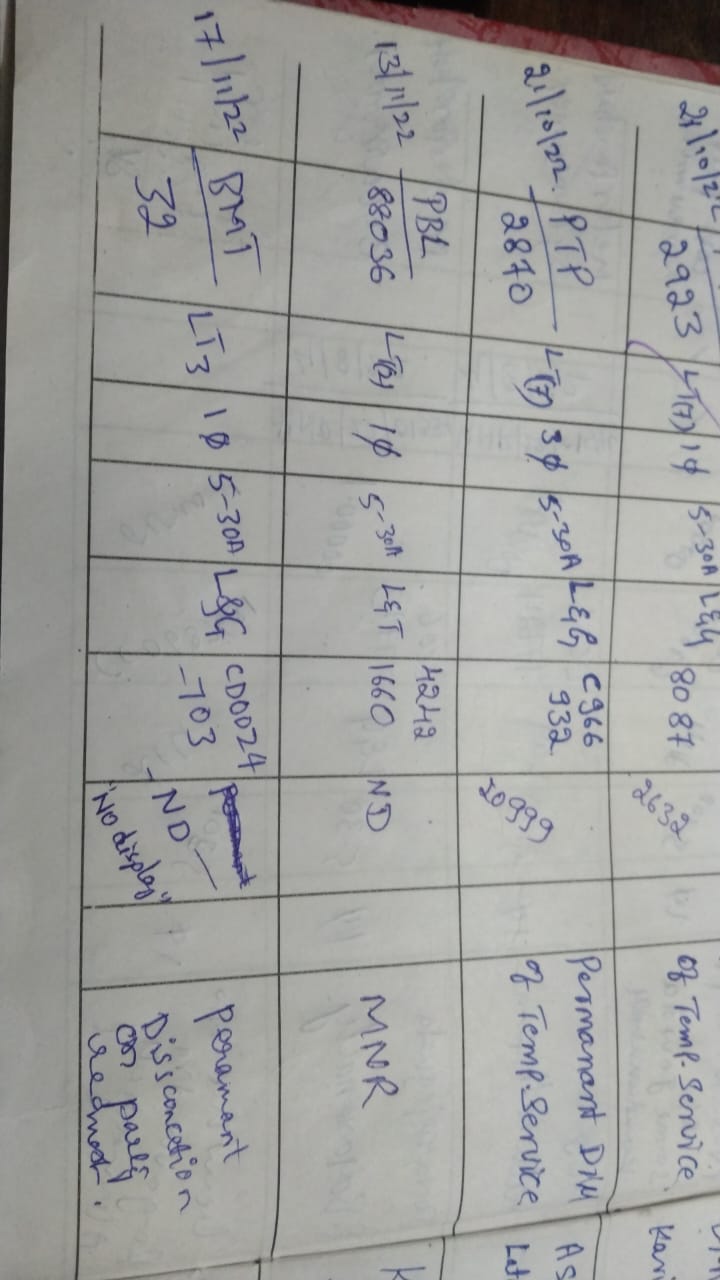 21/10/22
2923
LT(7)
1φ
5-30A
L&G
8087
2632
of Temp. Service.
21/10/22.
PTP
2870
LT(7)
3φ
5-30A
L&G
C966
932
20999
Permanant D/M
of Temp. Service
As
Let
13/11/22
PBL
88036
LT(2)
1φ
5-30A
L&T
4242
1660
ND
MNR
K
17/11/22
BMT
32
LT3
1φ
5-30A
L&G
CD0024
-703
- ND -
"No display"
peramant
Dissconcetion
on party